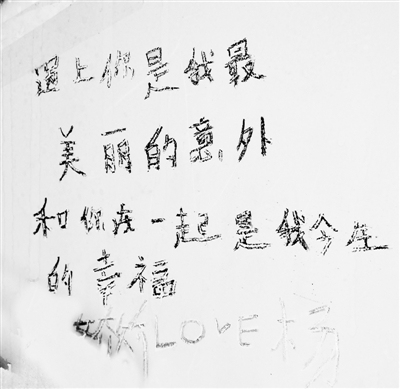 遇上你是我最
美丽的意外
和你在一起是我今生
的幸福
LOVE